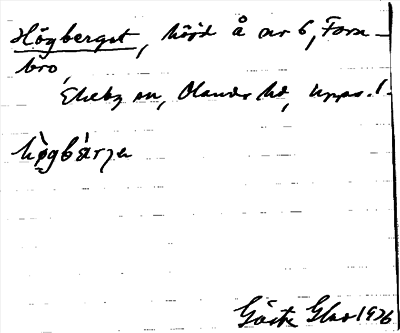 Högberget, höjd å ar 6, Forsbro,
Ekeby sn, Olands hd, Upps. l.
hø̀gbä̀rje
Gösta Glas 1936